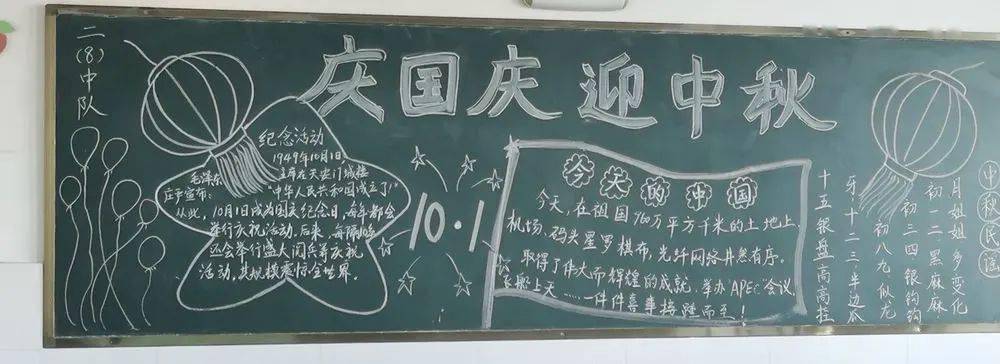 二(8)中队
庆国庆 迎中秋
纪念活动
1949年10月1日,
毛泽东主席在天安门城楼
庄严宣布:"中华人民共和国成立了!"
从此,10月1日成为国庆纪念日,每年都会
举行庆祝活动。后来,每隔
还会举行盛大阅兵等庆祝
活动,其规模震惊全世界。
10.1
今天的中国
今天,在祖国960万平方千米的土地上,
机场、码头星罗棋布,光纤网络井然有序。
取得了伟大而辉煌的成就,举办APEC会议,
飞船上天……一件件喜事接踵而至!
中秋民谣
月姐姐 多变化
初一二 黑麻麻
初三四 银钩钩
初八九 似龙
牙 十二三 半边瓜
十五银盘高高挂